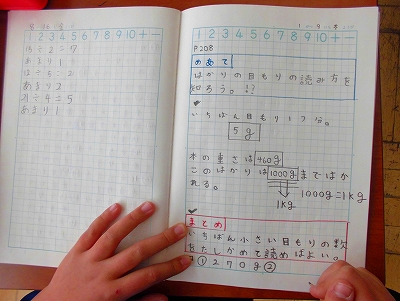 1 2 3 4 5 6 7 8 9 10 + -
あまり1
あまり2
あまり1
1 2 3 4 5 6 7 8 9 10 + -
P208
めあて
はかりの目もりの読み方を
知ろう。!?
いちばん目もり1つ分。
5g
本の重さは460g
このはかりは1000gまではか
れる。
1000g=1kg
1kg
まとめ
いちばん小さい目もりの数
をたしかめて読めばよい。
①270g②